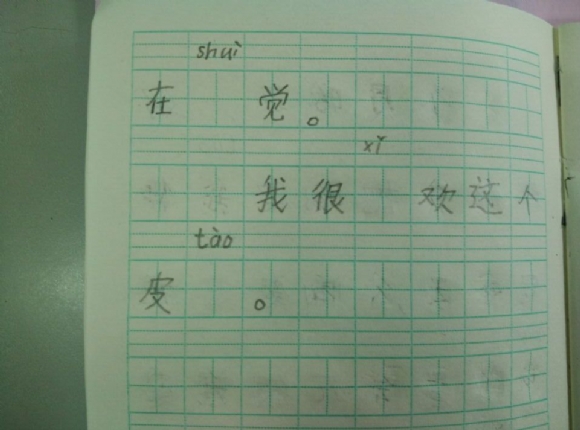 shuì
在 觉。
xǐ
我很 欢这个
tào
皮 。